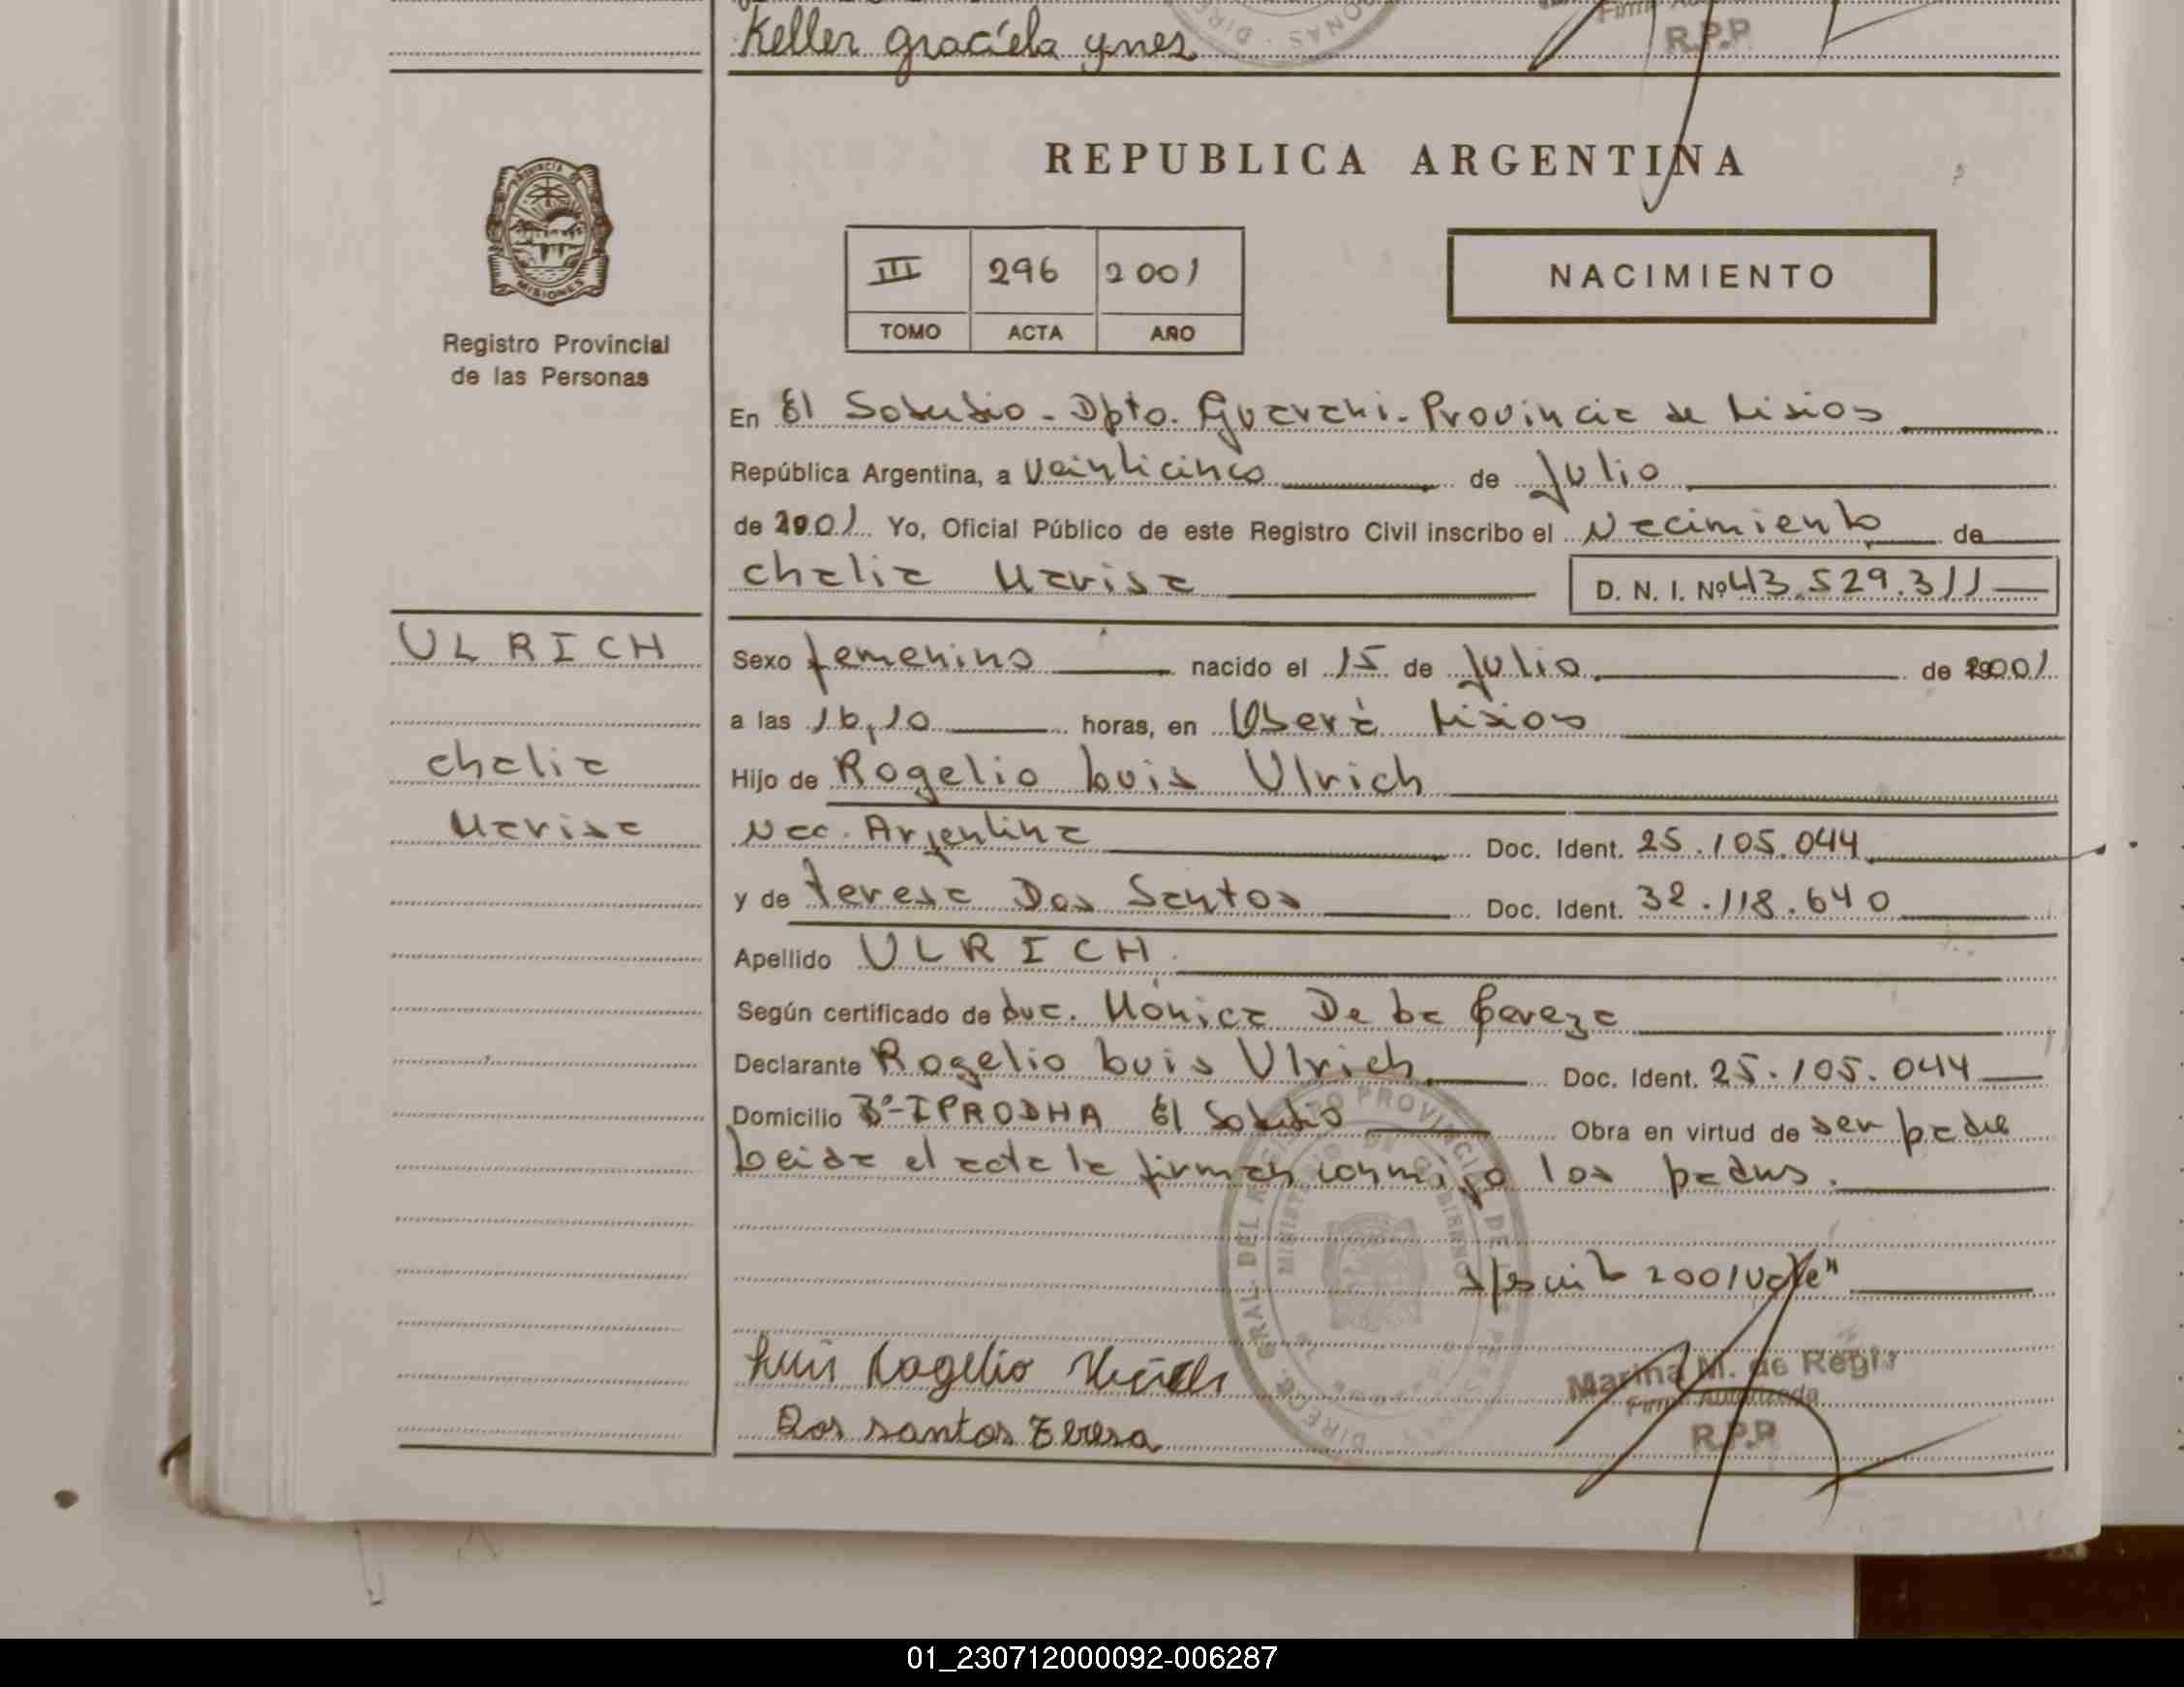 Keller graciela ynes
R.P.P
REPUBLICA ARGENTINA
PROVINCIA DE
MISIONES
Registro Provincial
de las Personas
III 296 2001
TOMO ACTA AÑO
NACIMIENTO
En El Soberbio - Dpto. Guarani - Provincia de Misiones
República Argentina, a Veinticinco de Julio
de 2001 Yo, Oficial Público de este Registro Civil inscribo el Nacimiento de
Chalia Marisa D. N. I. Nº 43.529.311
ULRICH
Chalia
Marisa
Sexo femenino nacido el 15 de Julio de 2001
a las 16,10 horas, en Oberá Misiones
Hijo de Rogelio Luis Ulrich
Nac. Argentina Doc. Ident. 25.105.044
y de Teresa Dos Santos Doc. Ident. 32.118.640
Apellido ULRICH
Según certificado de Dra. Mónica De La
Declarante Rogelio Luis Ulrich Doc. Ident. 25.105.044
Domicilio Bº-IPRODHA El Soberbio Obra en virtud de ser padre
Leida el acta la firman conmigo los padres.
2001 Vale"
Luis Rogelio Ulrich
Dos santos Teresa
Marina M. de Regis
Firma Autorizada
R.P.P
01_230712000092-006287